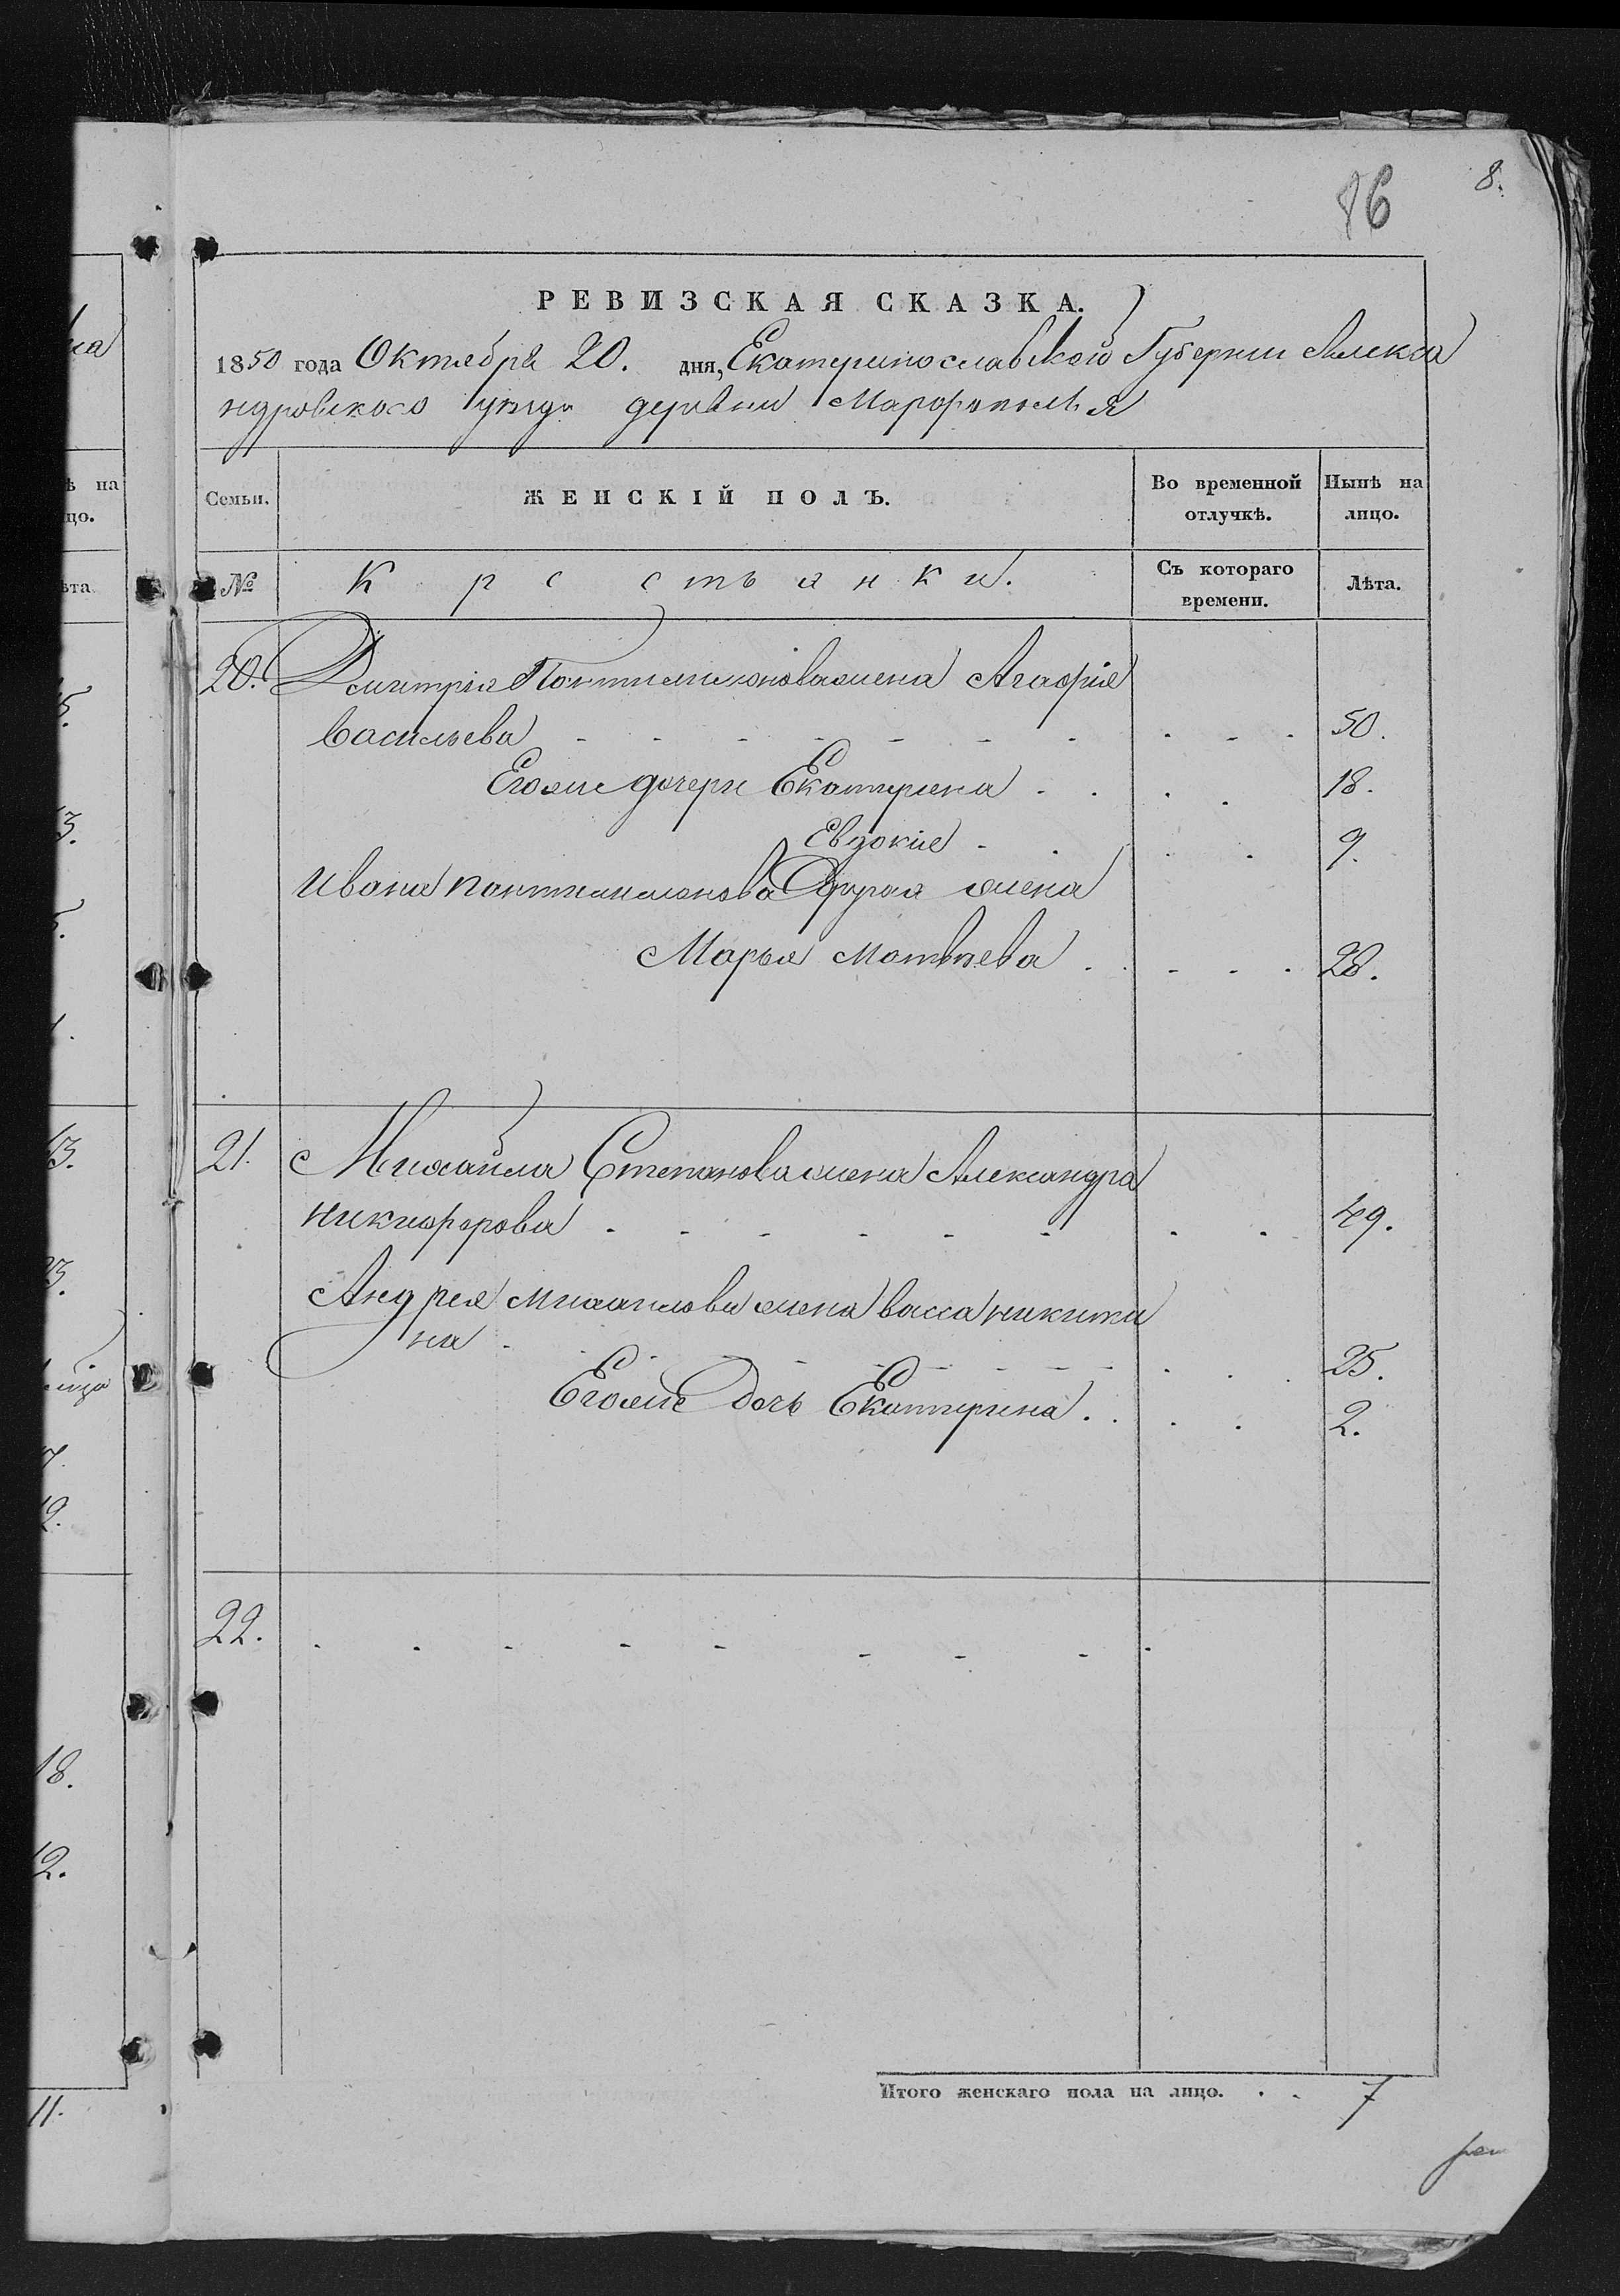 86
8.
РЕВИЗСКАЯ СКАЗКА.
1850 года Октября 20. дня, Екатеринославской Губернии Алекса
ндровского уѣзда деревни Марфополья
Семьи.
ЖЕНСКІЙ ПОЛЪ.
Во временной отлучкѣ.
Нынѣ на лицо.
№
Крестьянки.
Съ котораго времени.
Лѣта.
20. Дмитрія Пантилимонова жена Агафія
Васильева - - - - - - - . - - 50.
Егоже дочери Екатерина . . . . 18.
Евдокія - . . . 9.
Ивана Пантилимонова Другая жена
Марья Матвѣева . . - - . 28.
21. Михайла Степанова жена Александра
Никифорова . - - - - - . . 49.
Андрея Михайлова жена Васса Никити
на . . . - - - - - - . . . 25.
Егоже Дочь Екатерина . . . . 2.
22. . . - - - - - - .
Итого женскаго пола на лицо. . . 7
ѣ на
цо.
ѣта
18.
12.
11.